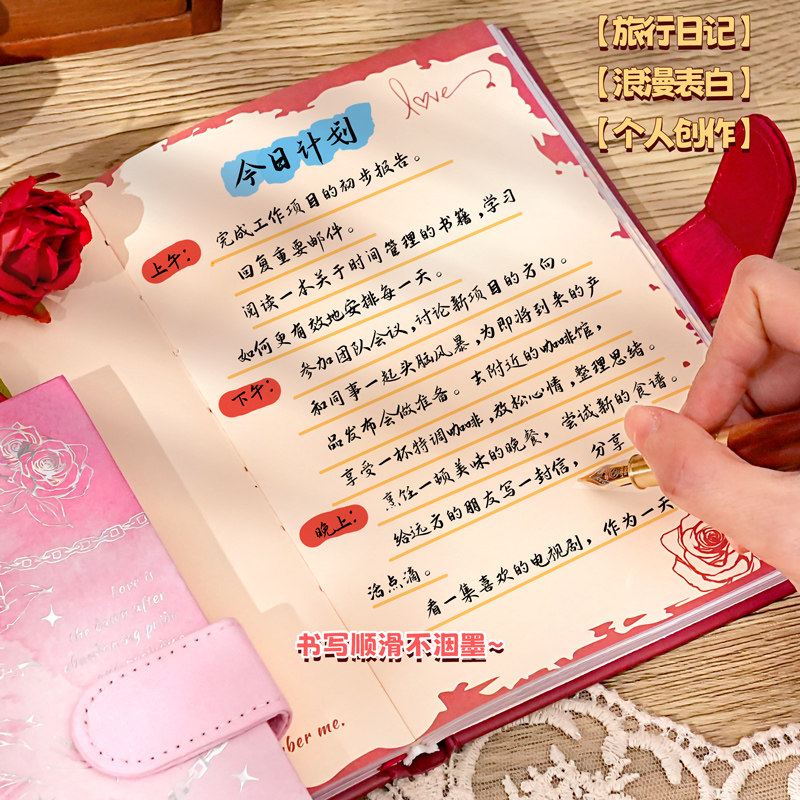 【旅行日记】
【浪漫表白】
【个人创作】
love
今日计划
上午:
完成工作项目的初步报告。
回复重要邮件。
阅读一本关于时间管理的书籍,学习
如何更有效地安排每一天。
下午:
参加团队会议,讨论新项目的方向。
和同事一起头脑风暴,为即将到来的产
品发布会做准备。去附近的咖啡馆,
享受一杯特调咖啡,放松心情,整理思绪。
晚上:
烹饪一顿美味的晚餐,尝试新的食谱。
给远方的朋友写一封信,分享
活点滴。
看一集喜欢的电视剧,作为一天
书写顺滑不洇墨~
Love is
the
after
ber me.